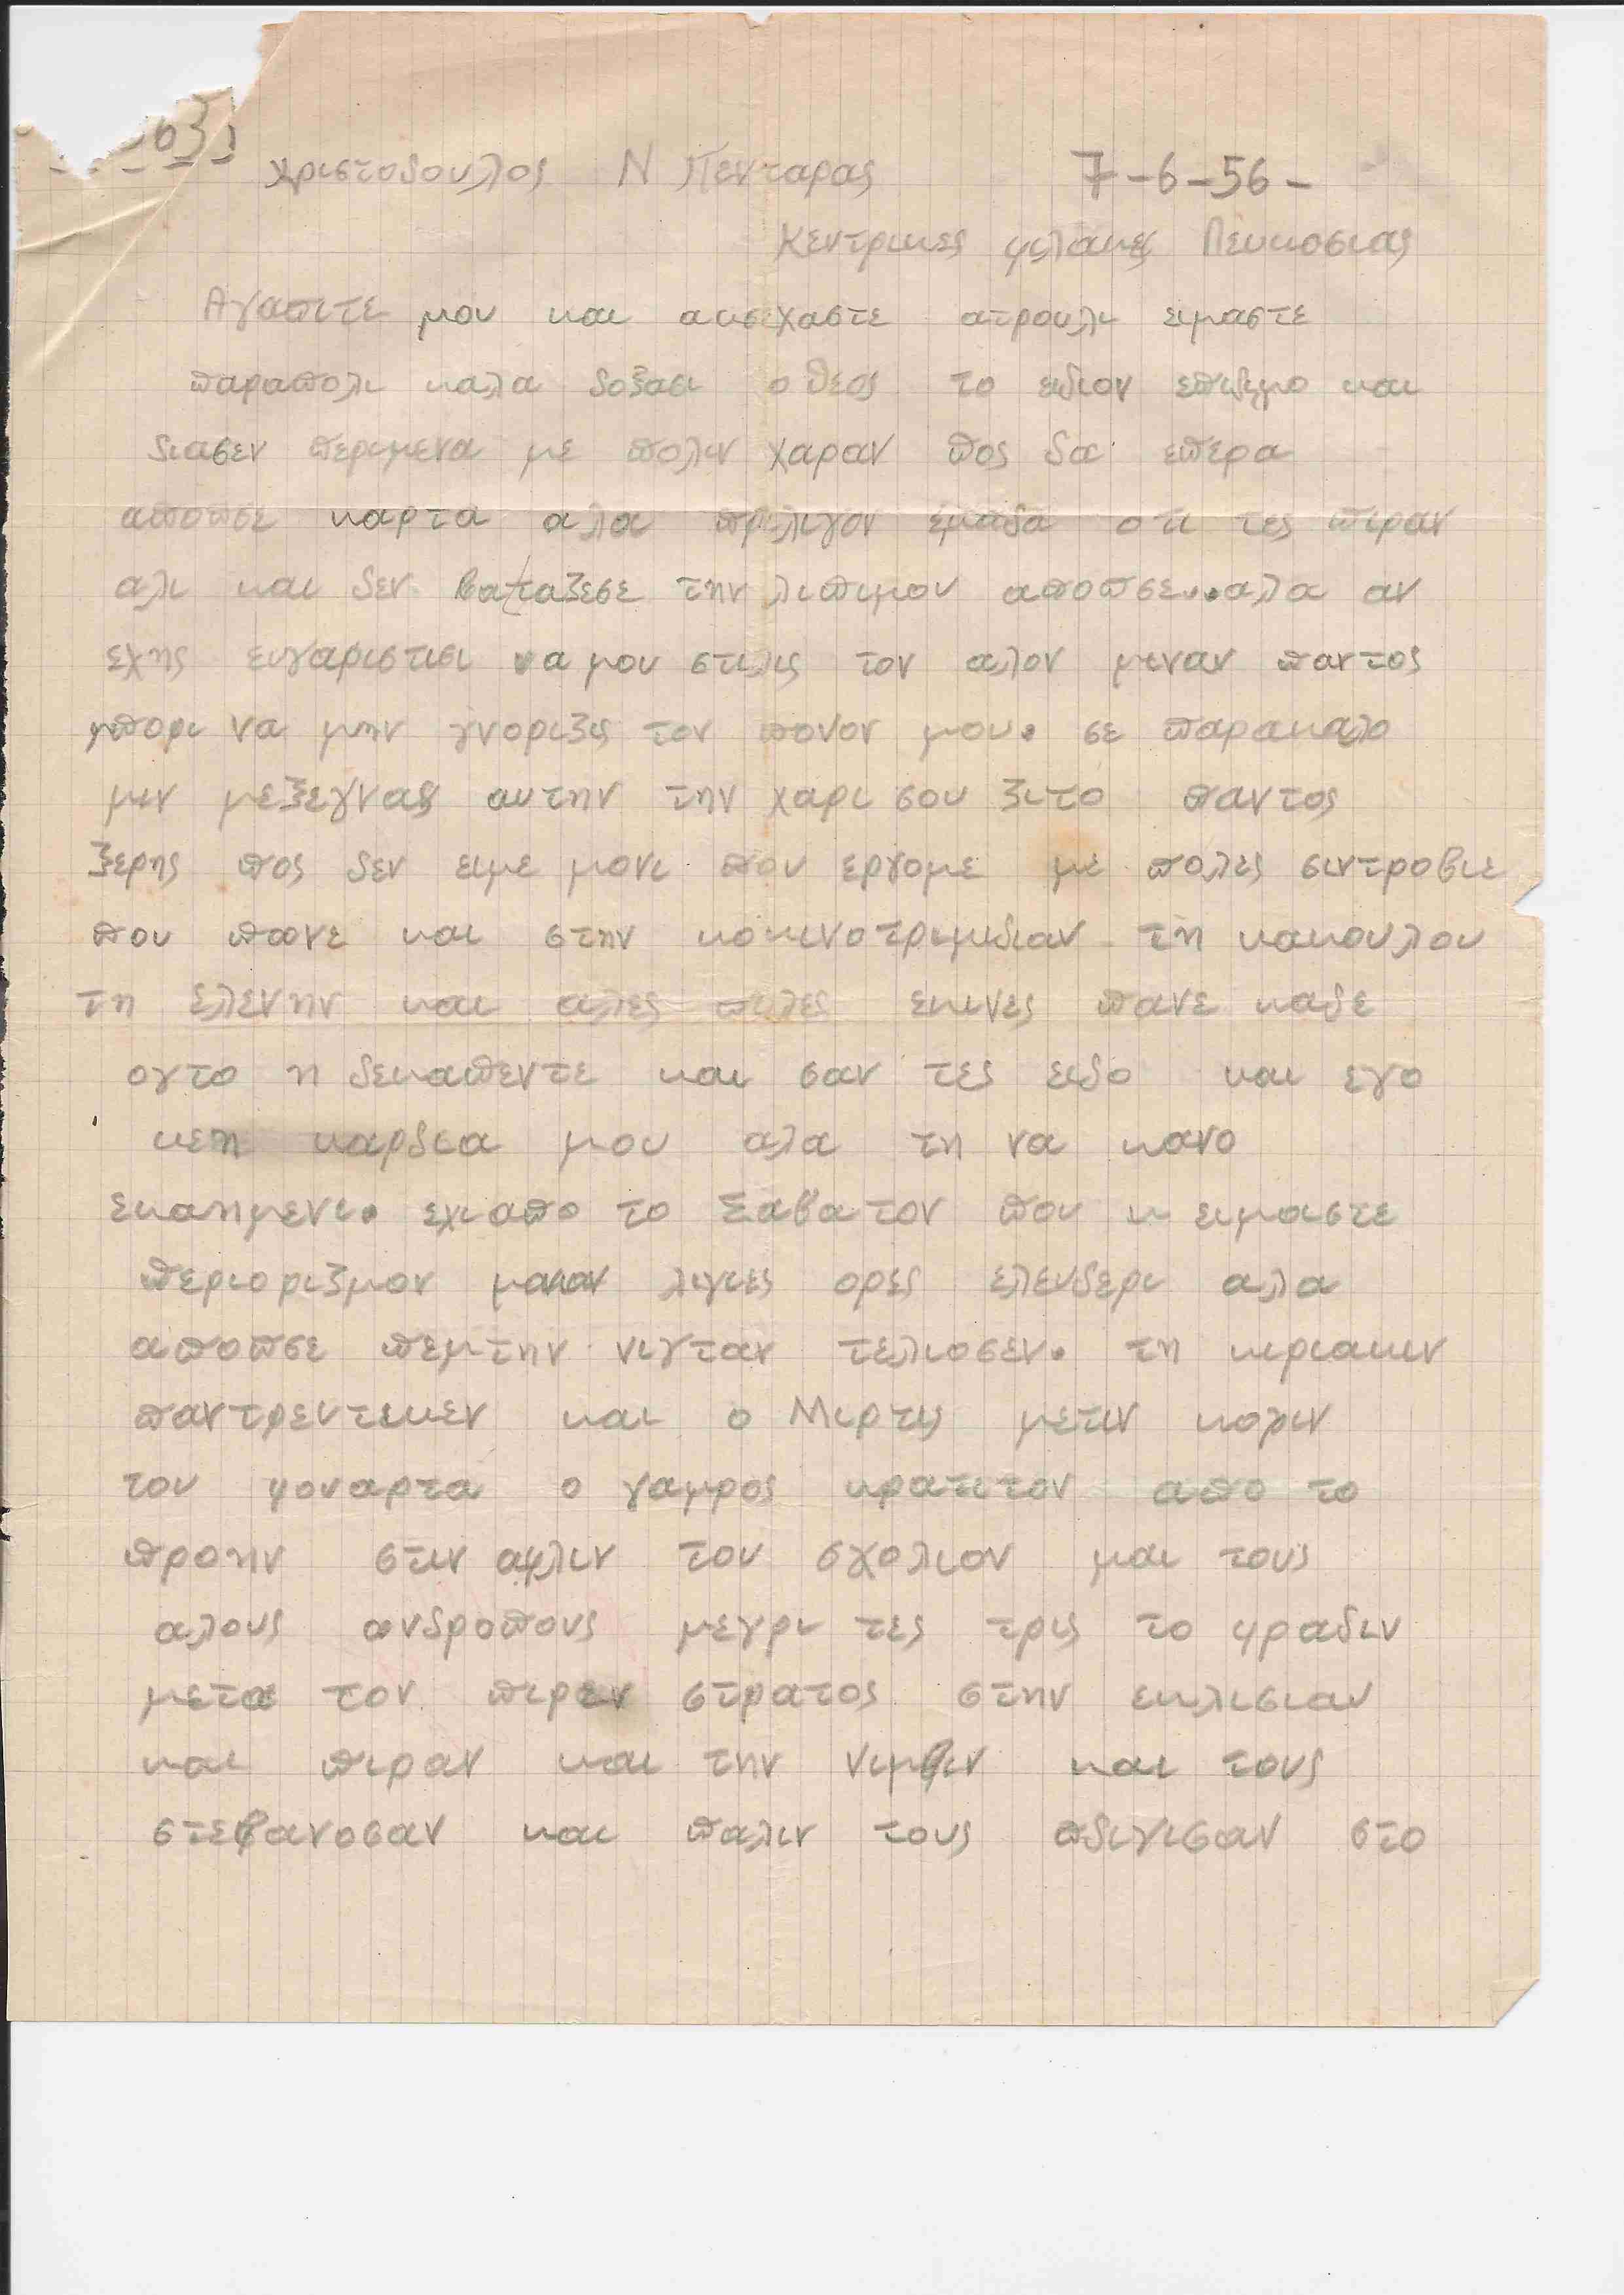 631
χριστοδουλος Ν Πενταρας 7-6-56-
Κεντρικες φιλακες Λευκοσιας
Αγαπιτε μου και ακσεχαστε ατρουλι ειμαστε
παραπολι καλα δοξασι ο θεος το ειδιον επιδιμο και
διασεν περιμενα με πολιν χαραν πος δα επερα
αποπσε καρτα αλα πριλιγον εμαδα οτι τες πιραν
αλι και δεν βαταξεσε την λιπιμου αποπσε.. αλα αν
εχης ευγαριστισι να μου στιλις τον αλον μιναν παντος
μπορι να μην γνοριζις τον πονον μου. σε παρακαλο
μιν μεξεγνας αυτην την χαρι σου ζιτο παντος
ξερης πος δεν ειμε μονι που εργομε με πολες σιντροβιε
που πανε και στην κοκινοτριμιδιαν τη κακουλου
τη ελενην και αλες πολες εκινες πανε καδε
ογτο η δεκαπεντε και σαν τες ειδο και εγο
κεη καρδια μου αλα τη να κανο
εκαημενι. εχι απο το Σαβατον που κ ειμαστε
περιοριζμον μαναν λιγιες ορες ελευδερι αλα
αποπσε πεμτην νιγταν τελιοσεν. τη κιριακιν
παντρευτικεν και ο Μιρτις μετιν κοριν
του ψοναρτα ο γαμρος κρατιτον απο το
προην στιν αφλιν του σχολιου μαι τους
αλους ανδροπους μεγρι τες τρις το ψραδιν
μετα τον πιρεν στρατος στην εκλισιαν
και πιραν και την νιμβιν και τους
στεβανοσαν και παλιν τους οδιγισαν στο